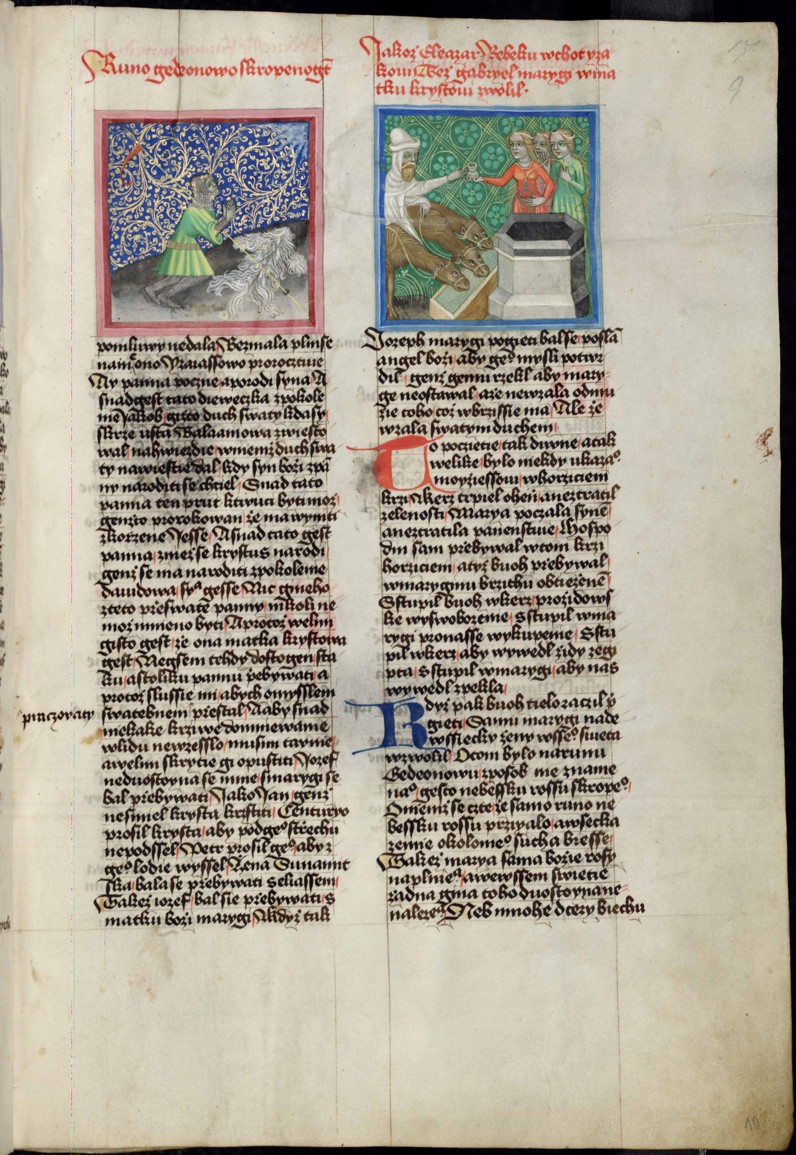 Runo gedeonowo skropeno gest
pomluwy nedala Bezmala plnise
nam ono Yzaiassowo proroctwie
Ay panna poczne aporodi syna A
snad gest tato dieweczka zpokole
nie Jakob gizto duch swaty kdasy
skrze usta Balaamowa zwiesto
wal nahwiezdie wniemz duch swa
ty nawiestie dal kdy syn bozi zpa
ny naroditi se chtiel Snad tato
panna ten prut ktwuci byti moz
genzto prorokowan ze ma wyniti
zkorzene Jesse Asnad tato gest
panna zniez se krystus narodi
genz se ma naroditi zpokolenie
dawidowa gesse Nic gineho
zteto przeswate panny nikoli ne
moz mineno byti Aprotoz welmi
gisto gest ze ona matka krystowa
gest Negsem tehdy dostogen sta
ku astoliku pannu przebywati a
protoz slussie mi abych omysslem
swatebniem przestal Aaby snad
niekake krziwe domniewanie
wlidu newzesslo musim tayne
awelmi skrytie gi opustiti Jozef
neduostoyna se mnie smarygi se
bal przebywati Jako Jan genz
nesmiel krysta krstiti Centuryo
prosil krysta aby podgeho strzechu
nepodssel Petr prosil geho aby z
geho lodie wyssel Zena Sunamit
ska balase przebywati seliassem
Takez iozef bal sie przebywati s
matku bozi marygi Akdyz tak
pinczovaty
Jakoz Eleazar Rebeku wchot yza
kowi Tez gabryel marygi wma
tku krystowi zwolil
Joseph marygi pogieti balsse posla
angel bozi aby geho mysli potwr
dil genz gemu rzekl aby mary
ge neostawal aze newzala odmu
zie toho coz wbrzissie ma Ale ze
wzala swatym duchem
To poczetie tak diwne atak
welike bylo niekdy ukazano
moyziessowi whorziciem
krzi Kerz trpiel ohen aneztratil
zelenosti Marya poczala syna
aneztratila panenstwie Hospo
din sam przebywal wtom krzi
horziciem atyz buoh przebywal
wmaryginu brzichu obtiezenem
Sstupil buoh wkerz prozidows
ke wyswobozenie Sstupil wma
rygi pronasse wykupenie Sstu
pil wkerz aby wywedl zidy zegi
pta Sstupil wmarygi aby nas
wywedl zpekla
Kdyz pak buoh tielo raczil prz
gieti Samu marygi nade
wssiecky zeny wsseho swieta
wzwolil Otom bylo narunu
Gedeonowu zposob nie zname
nano gesto nebessku rossu skropeno
Oniemz se czte ze samo runo ne
bessku rossu przigalo awsecka
zemie okolo nieho sucha biesse
Takez marya sama bozie rosy
naplniena awewssem swietie
zadna gina toho duostoyna ne
nalezena Neb mnohe dcery biechu